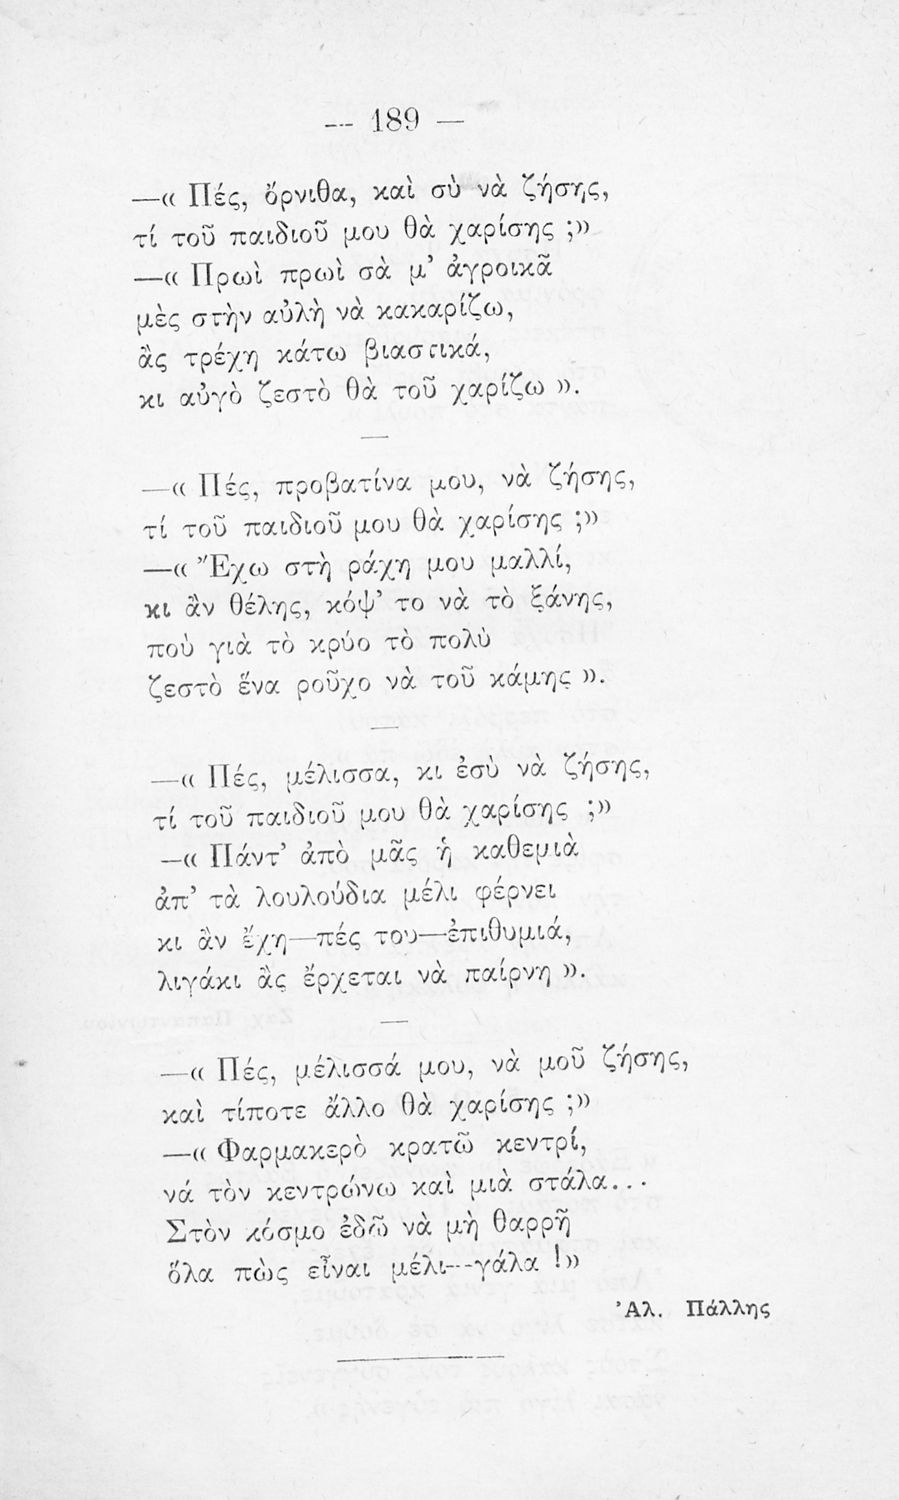 — 189 —
—« Πές, ὄρνιθα, καὶ σὺ νὰ ζήσης,
τί τοῦ παιδιοῦ μου θὰ χαρίσης ;»
—« Πρωὶ πρωὶ σὰ μ’ ἀγροικᾶ
μὲς στὴν αὐλὴ νὰ κακαρίζω,
ἂς τρέχη κάτω βιαστικά,
κι αὐγὸ ζεστὸ θὰ τοῦ χαρίζω ».
—« Πές, προβατίνα μου, νὰ ζήσης,
τί τοῦ παιδιοῦ μου θὰ χαρίσης ;»
—« Ἔχω στὴ ράχη μου μαλλί,
κι ἂν θέλης, κόψ’ το νὰ τὸ ξάνης,
ποὺ γιὰ τὸ κρύο τὸ πολὺ
ζεστὸ ἕνα ροῦχο νὰ τοῦ κάμης ».
—« Πές, μέλισσα, κι ἐσὺ νὰ ζήσης,
τί τοῦ παιδιοῦ μου θὰ χαρίσης ;»
—« Πάντ’ ἀπὸ μᾶς ἡ καθεμιὰ
ἀπ’ τὰ λουλούδια μέλι φέρνει
κι ἂν ἔχη—πές του—ἐπιθυμιά,
λιγάκι ἂς ἔρχεται νὰ παίρνη ».
—« Πές, μέλισσά μου, νὰ μοῦ ζήσης,
καὶ τίποτε ἄλλο θὰ χαρίσης ;»
—« Φαρμακερὸ κρατῶ κεντρί,
νά τὸν κεντρώνω καὶ μιὰ στάλα...
Στὸν κόσμο ἐδῶ νὰ μὴ θαρρῆ
ὅλα πὼς εἶναι μέλι—γάλα !»
Ἀλ. Πάλλης